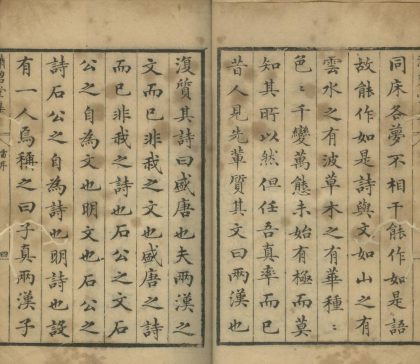 同床各夢不相干能作如是語
故能作如是詩與文如山之有
雲水之有波草木之有華種〻
色〻千變萬態未始有極而莫
知其所以然但任吾真率而已
昔人見先輩質其文曰兩漢也
復質其詩曰盛唐也夫兩漢之
文而已非我之文也盛唐之詩
而已非我之詩也石公之文石
公之自為文也明文也石公之
詩石公之自為詩也明詩也設
有一人焉稱之曰子真兩漢子
碧堂集 雷序 四